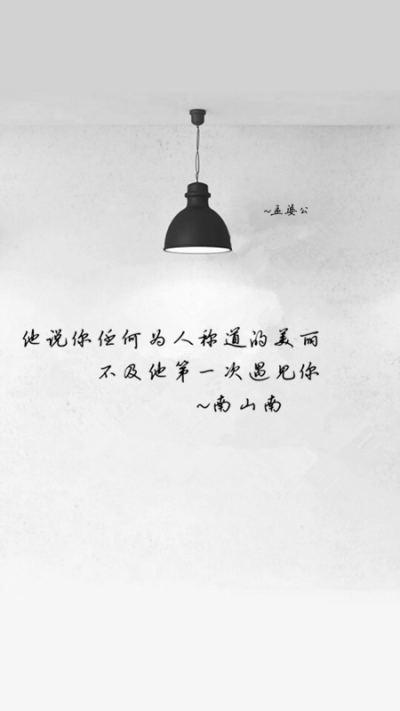 ~孟婆公
他说你任何为人称道的美丽
不及他第一次遇见你
~南山南